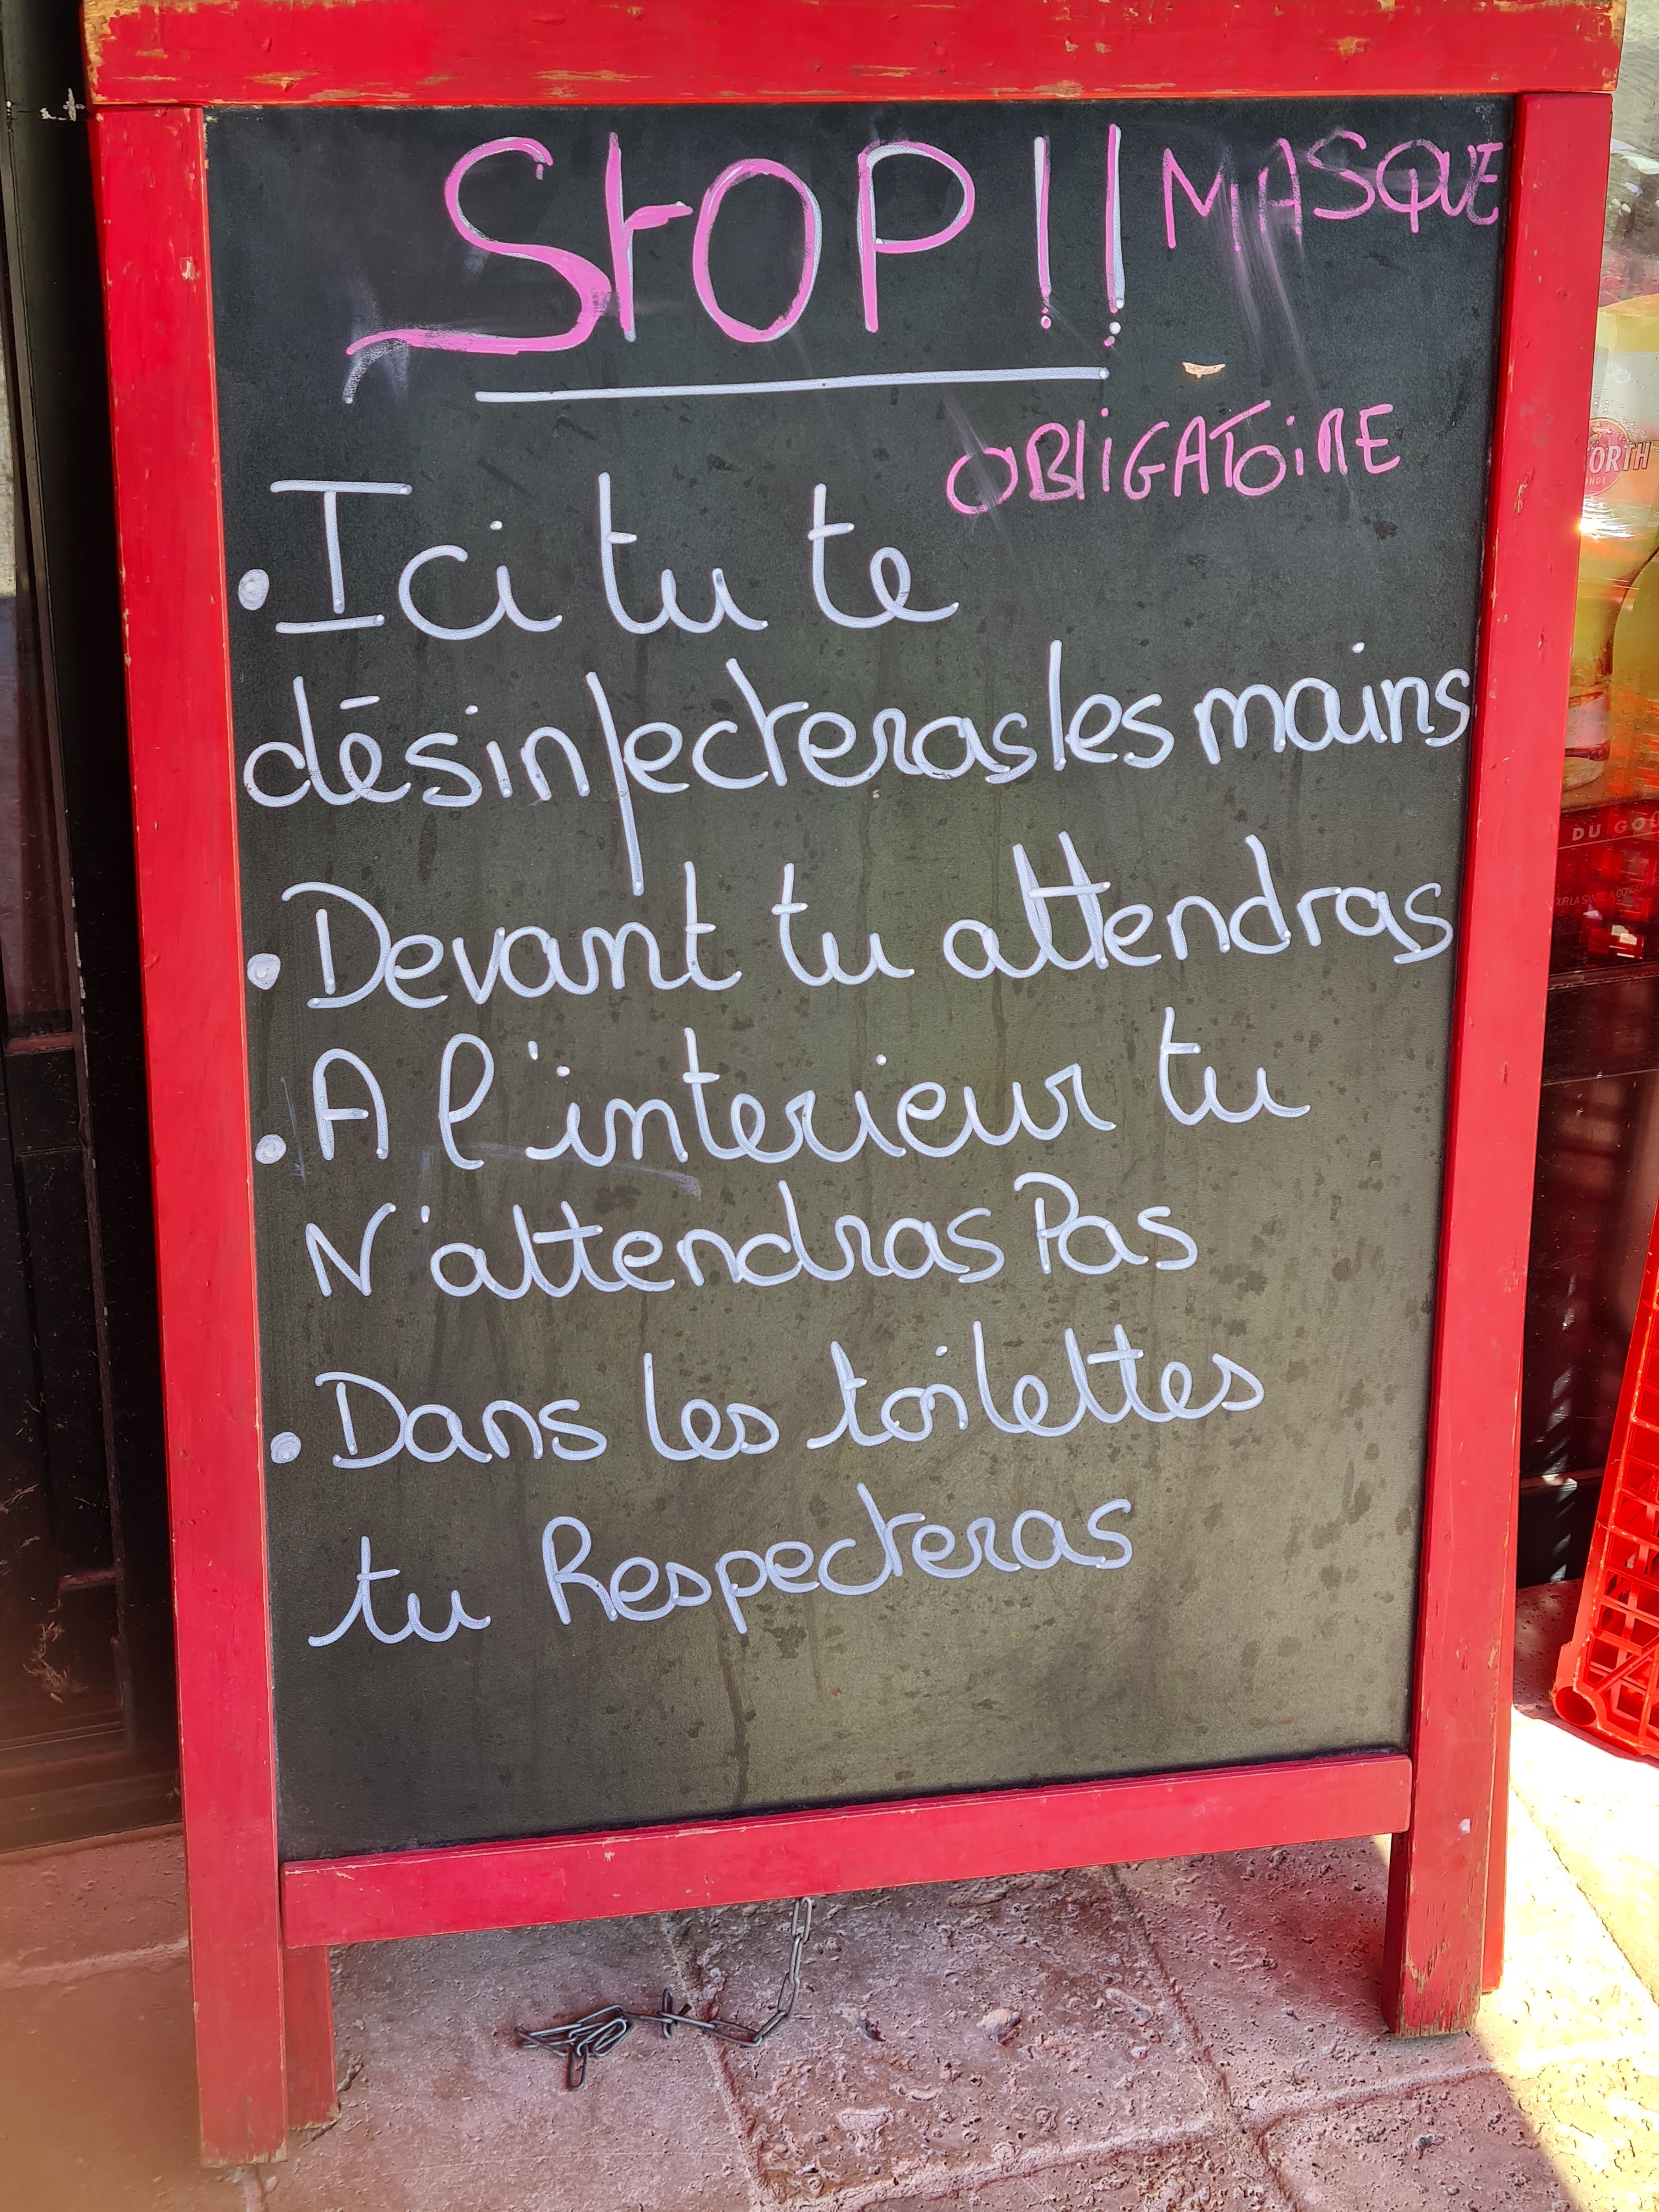 StOP !! MASQUE
OBLIGATOIRE
• Ici tu te
désinfecteras les mains
• Devant tu attendras
• A l'interieur tu
N'attendras Pas
• Dans les toilettes
tu Respecteras
ORTH
ONDE
DU GOU